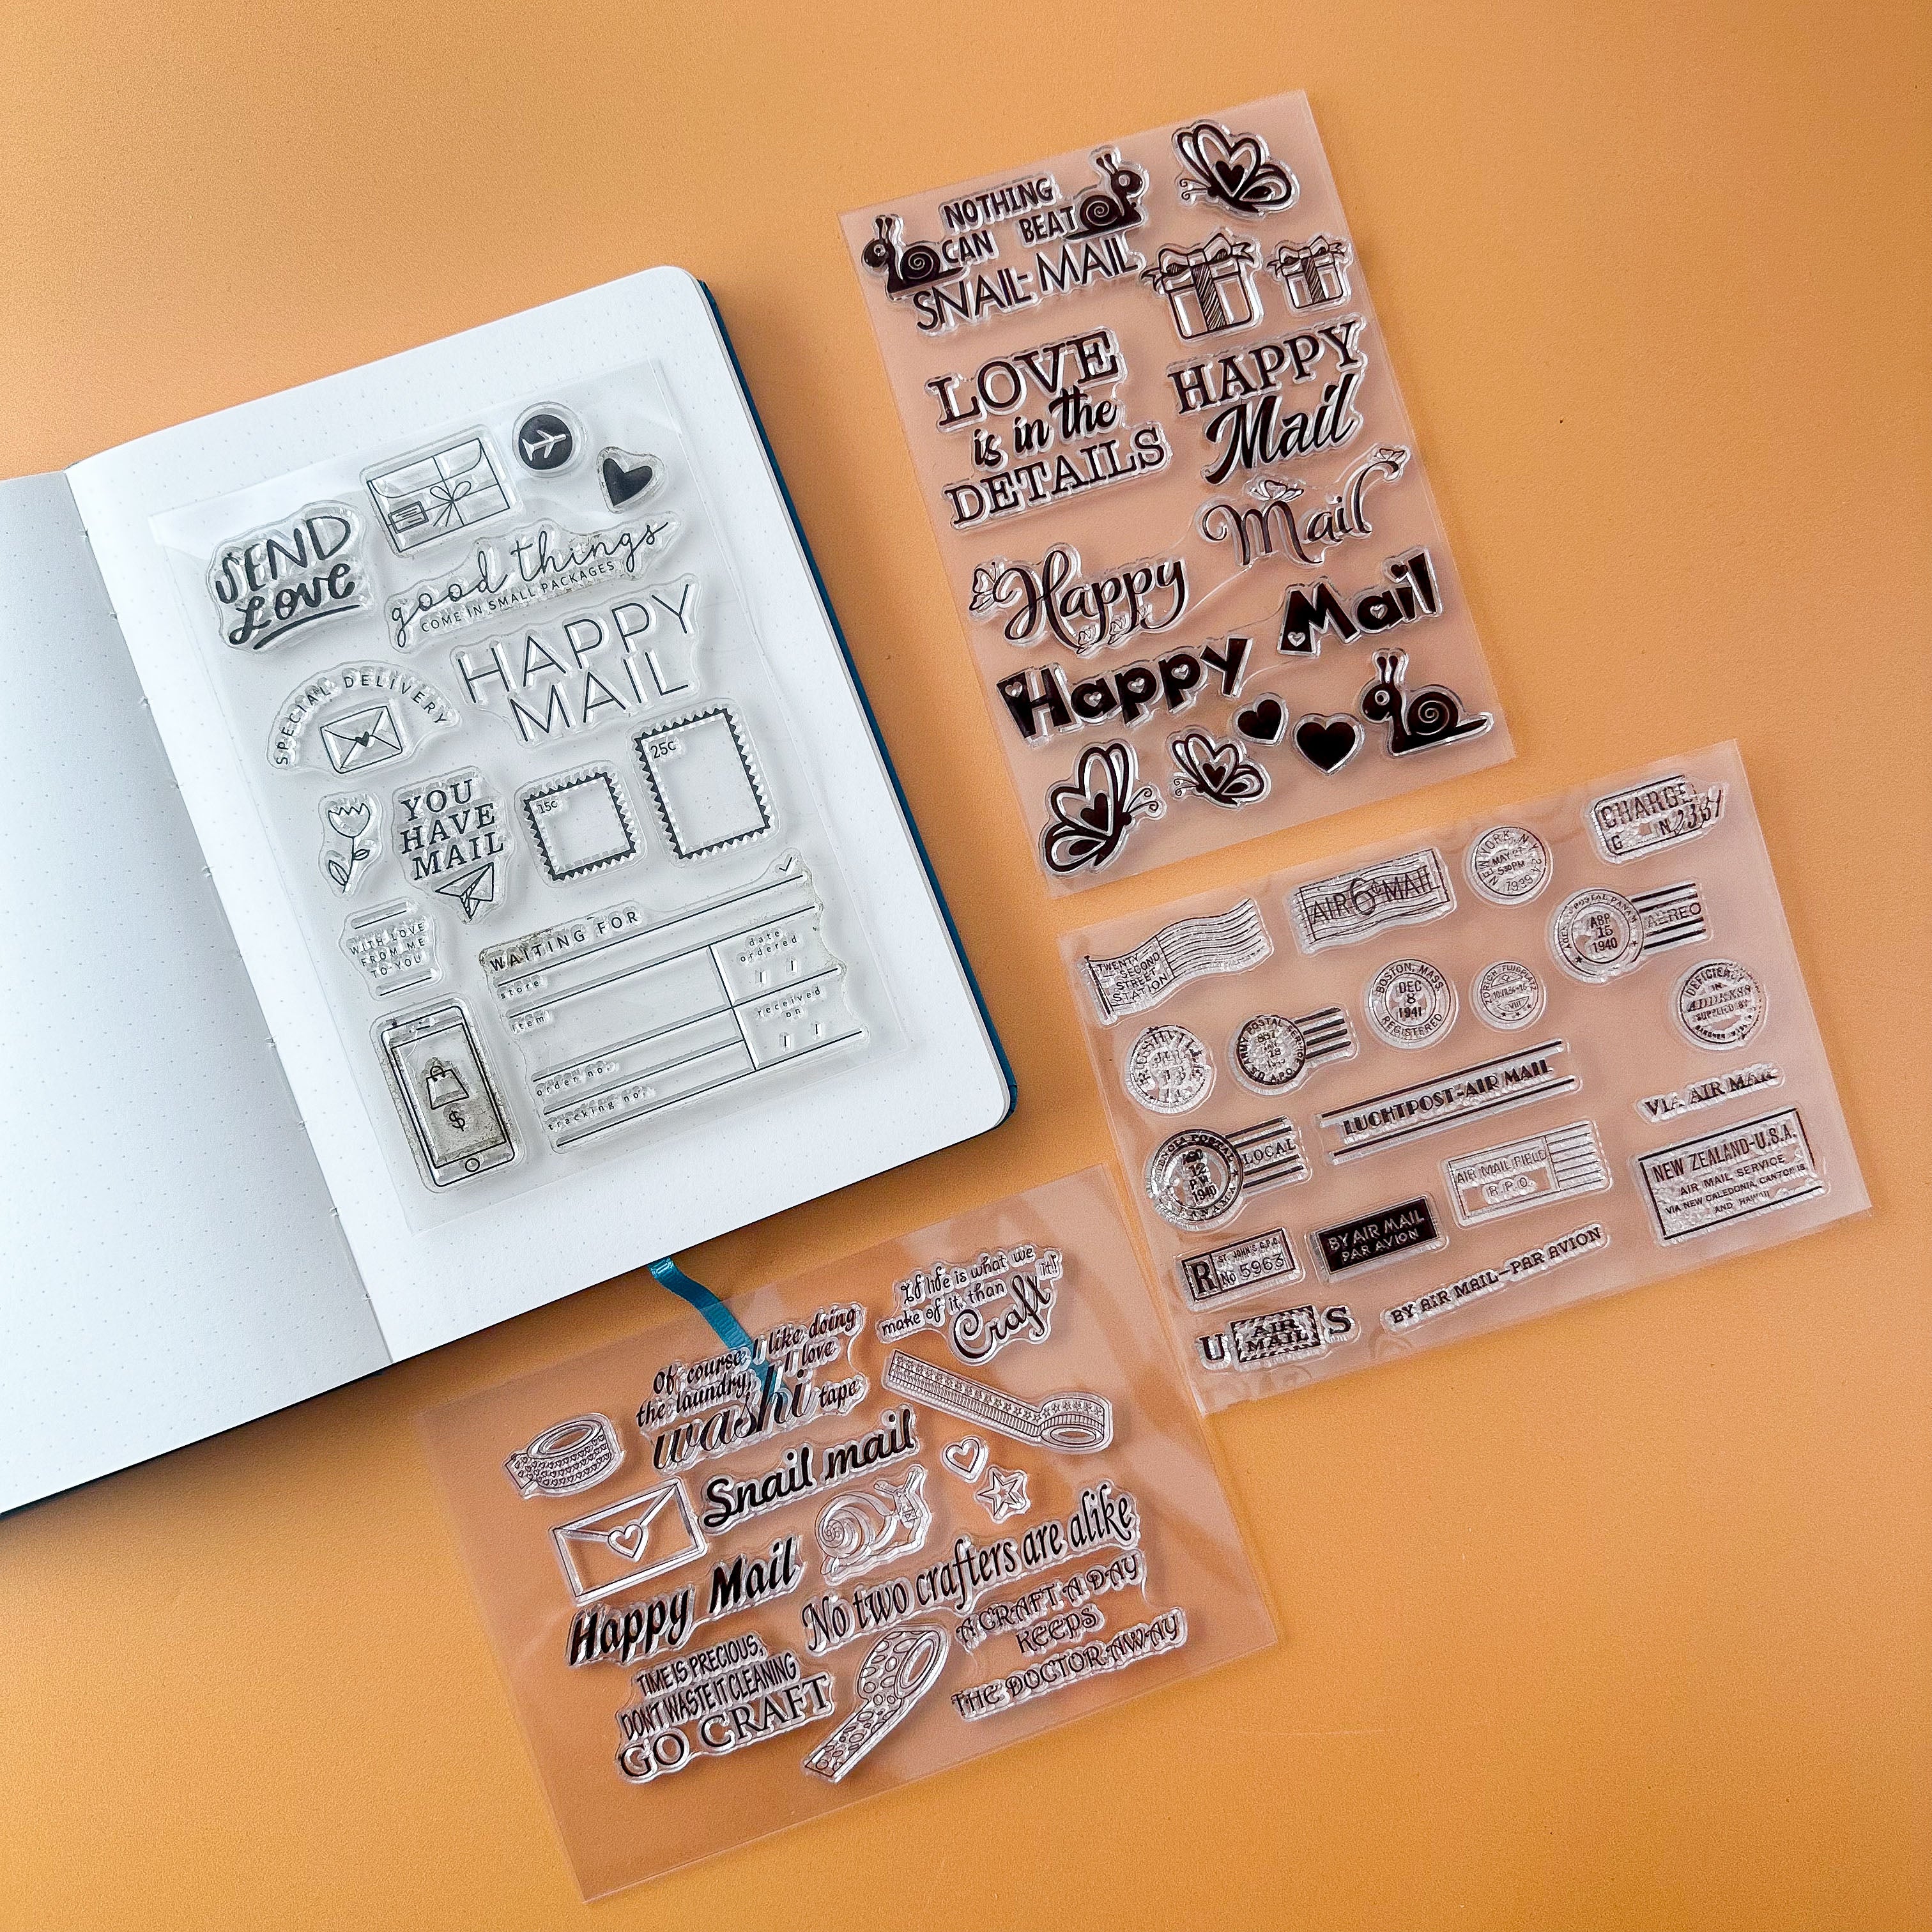 SEND
LOVE
good things
COME IN SMALL PACKAGES
HAPPY
MAIL
SPECIAL DELIVERY
YOU
HAVE
MAIL
15c
25c
WITH LOVE
FROM ME
TO YOU
WAITING FOR
store
item
order no:
tracking no:
date
ordered
/ /
received
on
/ /
$
NOTHING
CAN BEAT
SNAIL-MAIL
LOVE
is in the
DETAILS
HAPPY
Mail
Happy Mail
Happy Mail
TWENTY
SECOND
STREET
STATION
AIR 6¢ MAIL
NEW YORK, N.Y.
MAY 27
530PM
1939
CHARGE
BOSTON, MASS.
DEC
8
1941
REGISTERED
APR
15
1940
AEREO
ARMY POSTAL SERVICE
A.P.O.
ADDRESS
SUPPLIED BY
LUCHTPOST-AIR MAIL
VIA AIR MAIL
12
P.M.
1940
LOCAL
AIR MAIL FIELD
R.P.O.
NEW ZEALAND-U.S.A.
AIR MAIL SERVICE
VIA NEW CALEDONIA, CANTON IS
AND HAWAII
R ST. JOHN'S G.P.O.
No 5963
BY AIR MAIL
PAR AVION
BY AIR MAIL-PAR AVION
U AIR MAIL S
If life is what we
make of it, than
Craft it!
Of course I like doing
the laundry, I love
washi tape
Snail mail
Happy Mail
No two crafters are alike
A CRAFT A DAY
KEEPS
THE DOCTOR AWAY
TIME IS PRECIOUS,
DON'T WASTE IT CLEANING
GO CRAFT